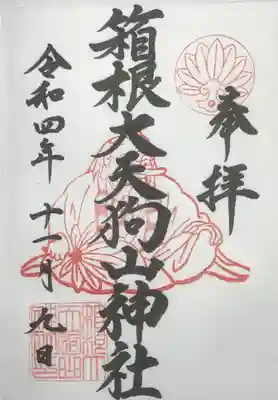 奉拝
箱根大天狗山神社
令和四年十一月九日